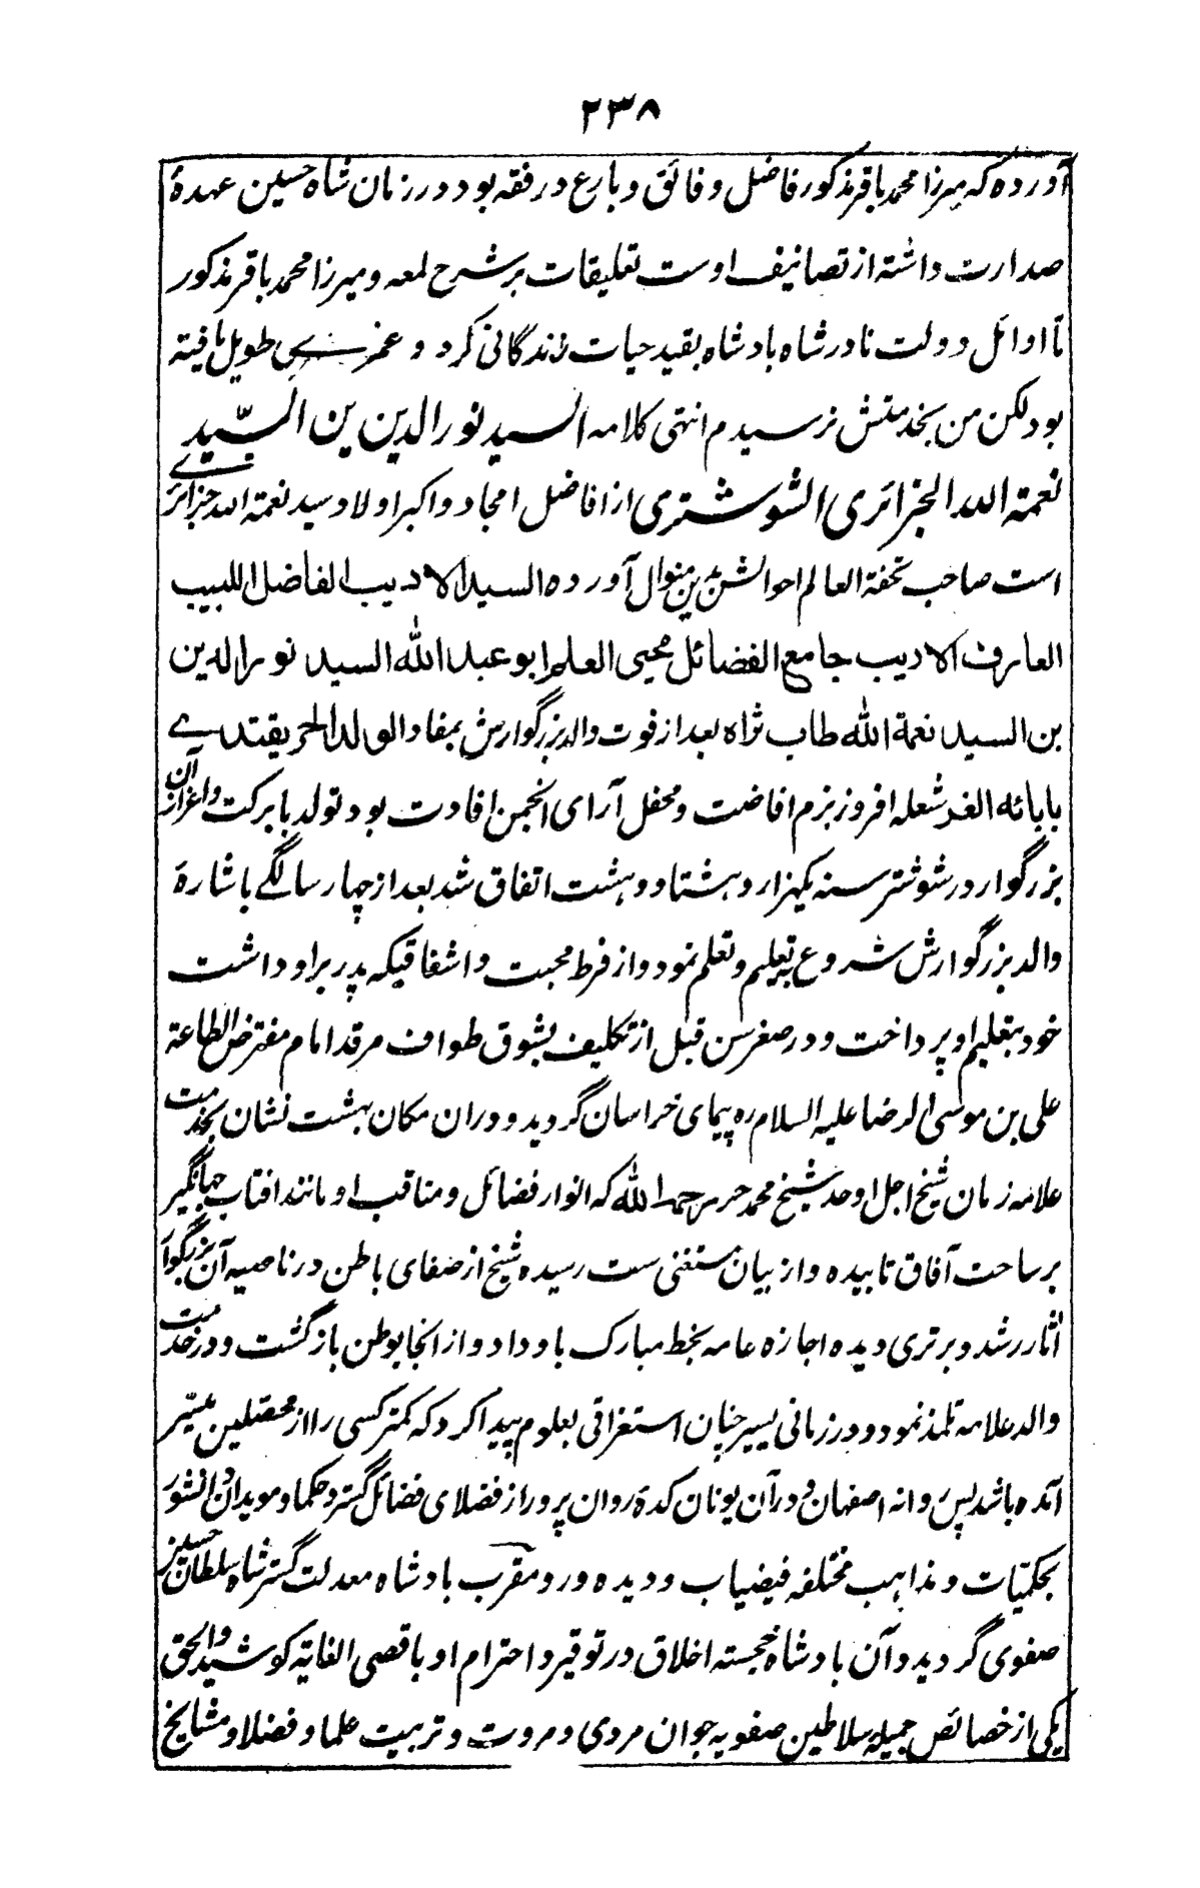 ۲۳۸
آورده که میرزا محمد باقر مذکور فاضل و فائق و بارع در فقه بود در زمان شاه حسین عهدهٔ
صدارت داشته از تصانیف اوست تعلیقات بر شرح لمعه و میرزا محمد باقر مذکور
تا اوائل دولت نادر شاه بادشاه بقید حیات زندگانی کرد و عمرے طویل یافته
بود لکن من بخدمتش نرسیدم انتهی کلامه السید نور الدین بن السّید
نعمة الله الجزائری الشوشتری از افاضل امجاد و اکبر اولاد سید نعمة الله جزائرے
است صاحب تحفة العالم احوالش برین منوال آورده السید الادیب الفاضل اللبیب
العارف الادیب جامع الفضائل محیی العلم ابو عبد الله السید نور الدین
بن السید نعمة الله طاب ثراه بعد از فوت والد بزرگوارش بمفاد الولد الحر یقتدے
بابائه الغر شعله افروز بزم افاضت و محفل آرای انجمن افادت بود تولد با برکت و اعزاز آن
بزرگوار در شوشتر سنه یکهزار و هشتاد و هشت اتفاق شد بعد از چهار سالگے باشارهٔ
والد بزرگوارش شروع بتعلیم و تعلم نمود و از فرط محبت و اشفاقیکه پدر بر او داشت
خود بتعلیم او پرداخت و در صغر سن قبل از تکلیف بشوق طواف مرقد امام مفترض الطاعة
علی بن موسی الرضا علیه السلام ره پیمای خراسان گردید و دران مکان بهشت نشان بخدمت
علامه زمان شیخ اجل اوحد شیخ محمد حر رحمه الله که انوار فضائل و مناقب او مانند افتاب جهانگیر
بر ساحت آفاق تابیده و از بیان مستغنی ست رسیده شیخ از صفای باطن در ناصیه آن بزرگوار
اثار رشد و برتری دیده اجازه عامه بخط مبارک باو داد و از انجا بوطن بازگشت و در خدمت
والد علامه تلمذ نمود و در زمانی یسیر چنان استغراقی بعلوم پیدا کرد که کمتر کسی را از محصّلین میسّر
آمده باشد پس روانه اصفهان و در آن یونان کدهٔ روان پرور از فضلای فضائل گستر و حکما و موبدان دانشور
بحکمیّات و مذاهب مختلفه فیضیاب و دیده ور و مقرب بادشاه معدلت گستر شاه سلطان حسین
صفوی گردید و آن بادشاه خجسته اخلاق در توقیر و احترام او باقصی الغایة کوشید و الحق
یکی از خصائص جمیله سلاطین صفویه جوان مردی و مروت و تربیت علما و فضلا و مشایخ